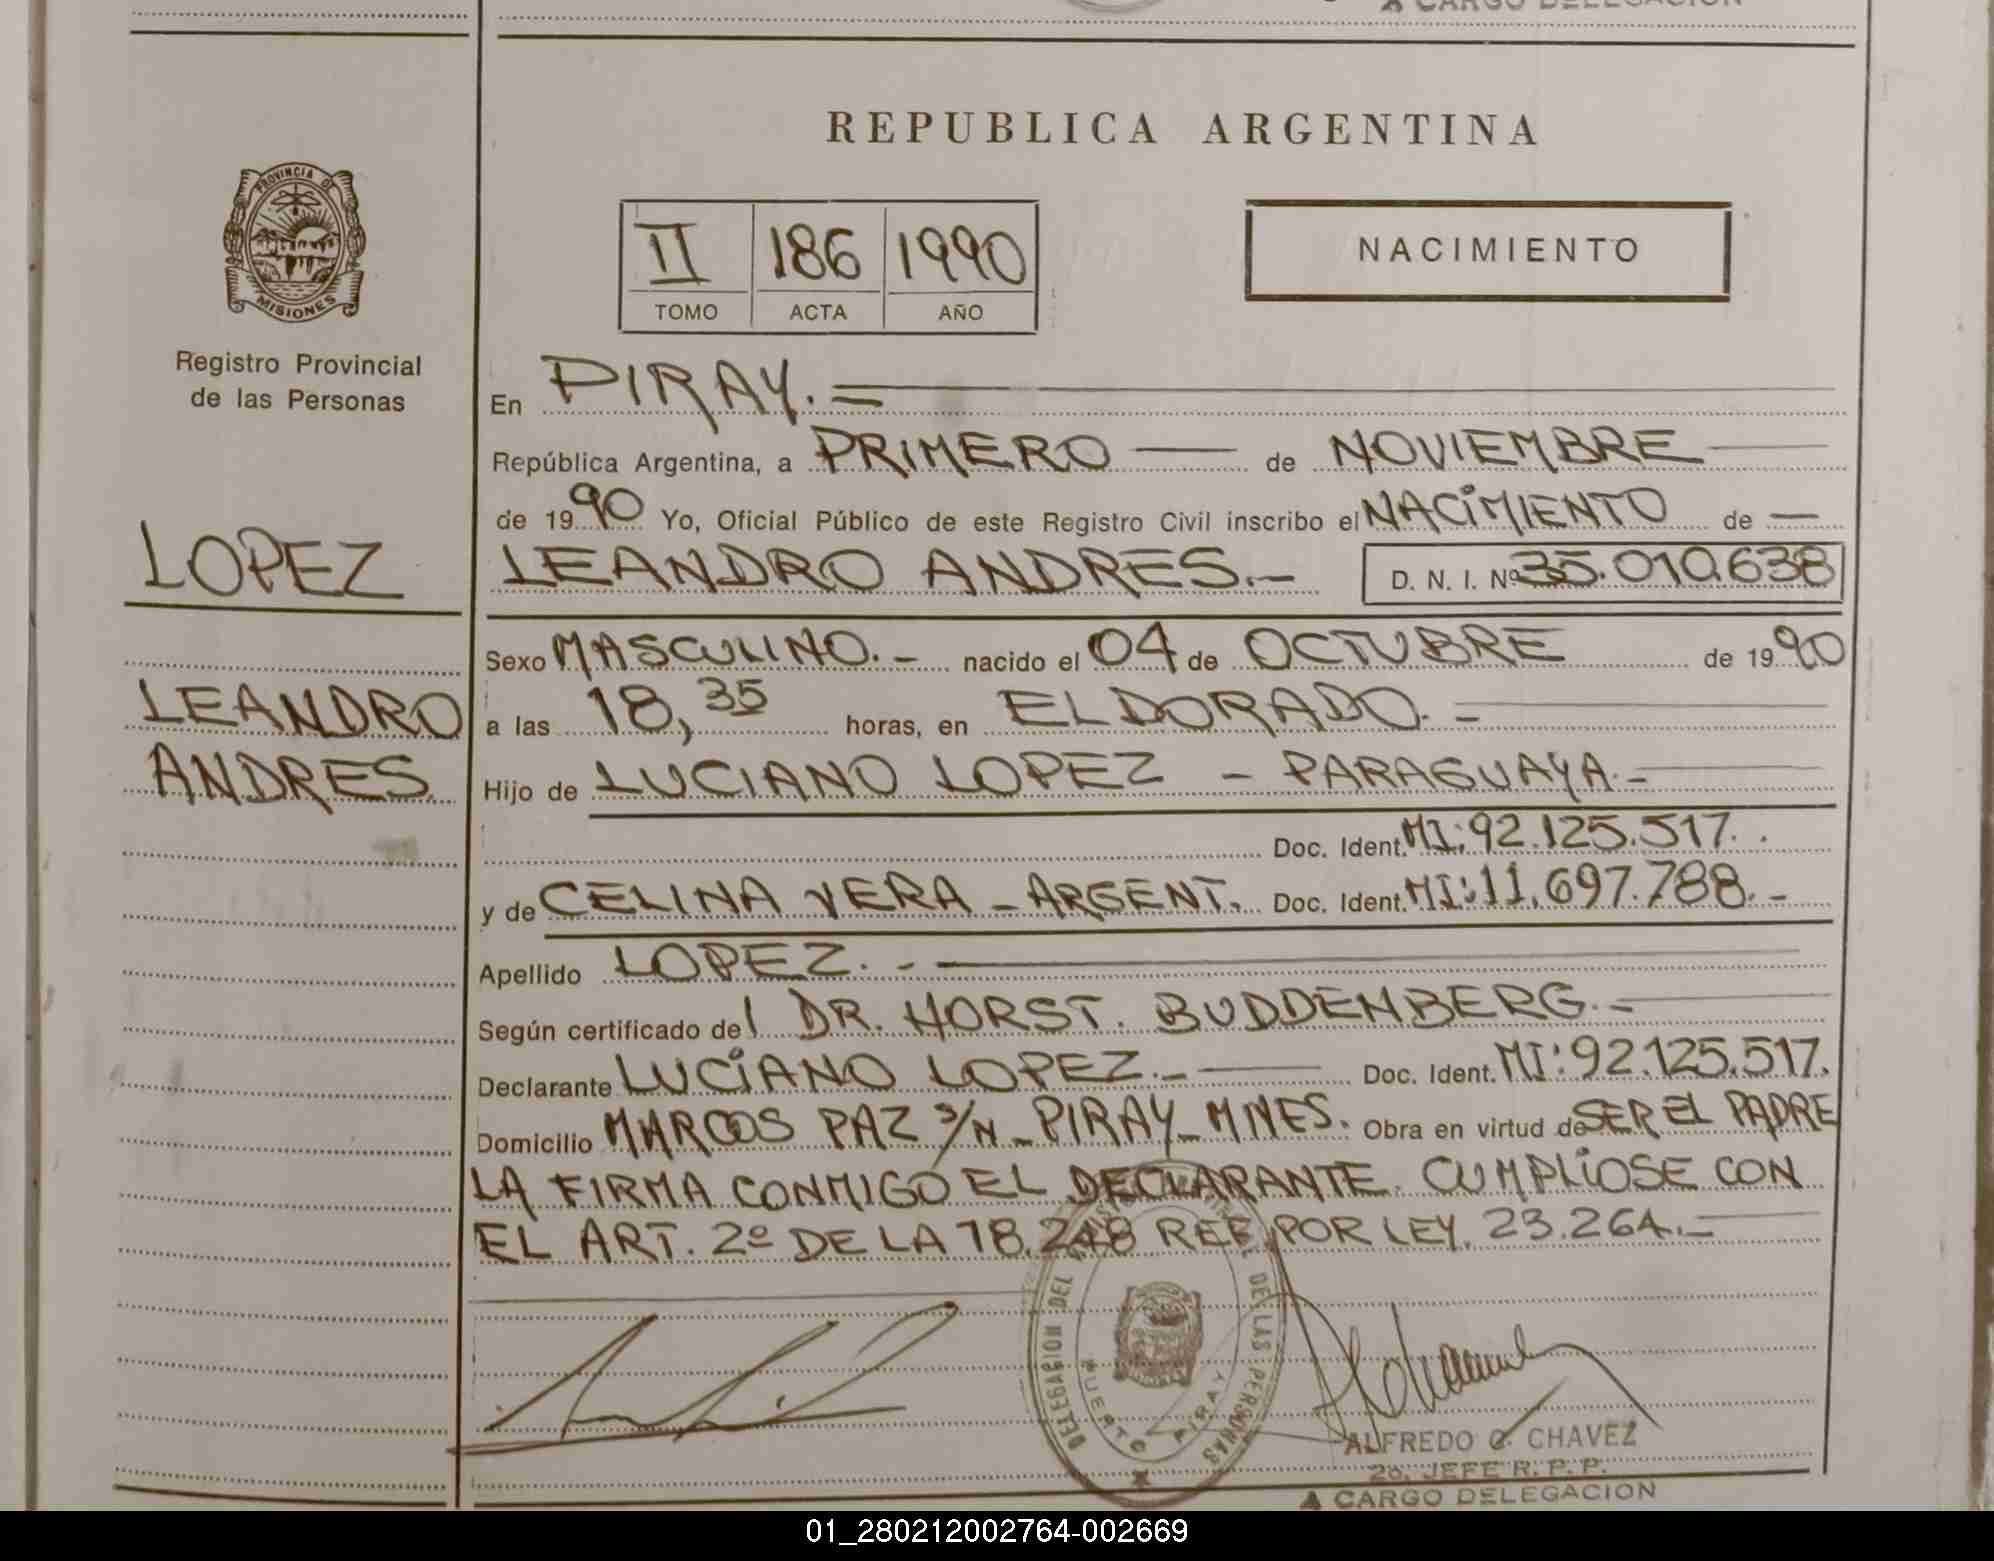 A CARGO DELEGACION
REPUBLICA ARGENTINA
PROVINCIA DE
MISIONES
Registro Provincial
de las Personas
LOPEZ
LEANDRO
ANDRES
II 186 1990
TOMO ACTA AÑO
NACIMIENTO
En PIRAY.=
República Argentina, a PRIMERO — de NOVIEMBRE
de 1990 Yo, Oficial Público de este Registro Civil inscribo el NACIMIENTO de —
LEANDRO ANDRES.- D. N. I. Nº 35.010.638
Sexo MASCULINO.- nacido el 04 de OCTUBRE de 1990
a las 18,35 horas, en ELDORADO.-
Hijo de LUCIANO LOPEZ - PARAGUAYA.-
Doc. Ident. MI:92.125.517.
y de CELINA VERA - ARGENT. Doc. Ident. MI:11.697.788.-
Apellido LOPEZ.-
Según certificado del DR. HORST. BUDDENBERG.-
Declarante LUCIANO LOPEZ.- Doc. Ident. MI:92.125.517.
Domicilio MARCOS PAZ S/N - PIRAY - MNES. Obra en virtud de SER EL PADRE
LA FIRMA CONMIGO EL DECLARANTE. CUMPLIOSE CON
EL ART. 2º DE LA 18.248 REF. POR LEY. 23.264.-
DELEGACION DEL DE LAS PERSONAS
PUERTO PIRAY
ALFREDO C. CHAVEZ
2o. JEFE R. P. P.
A CARGO DELEGACION
01_280212002764-002669